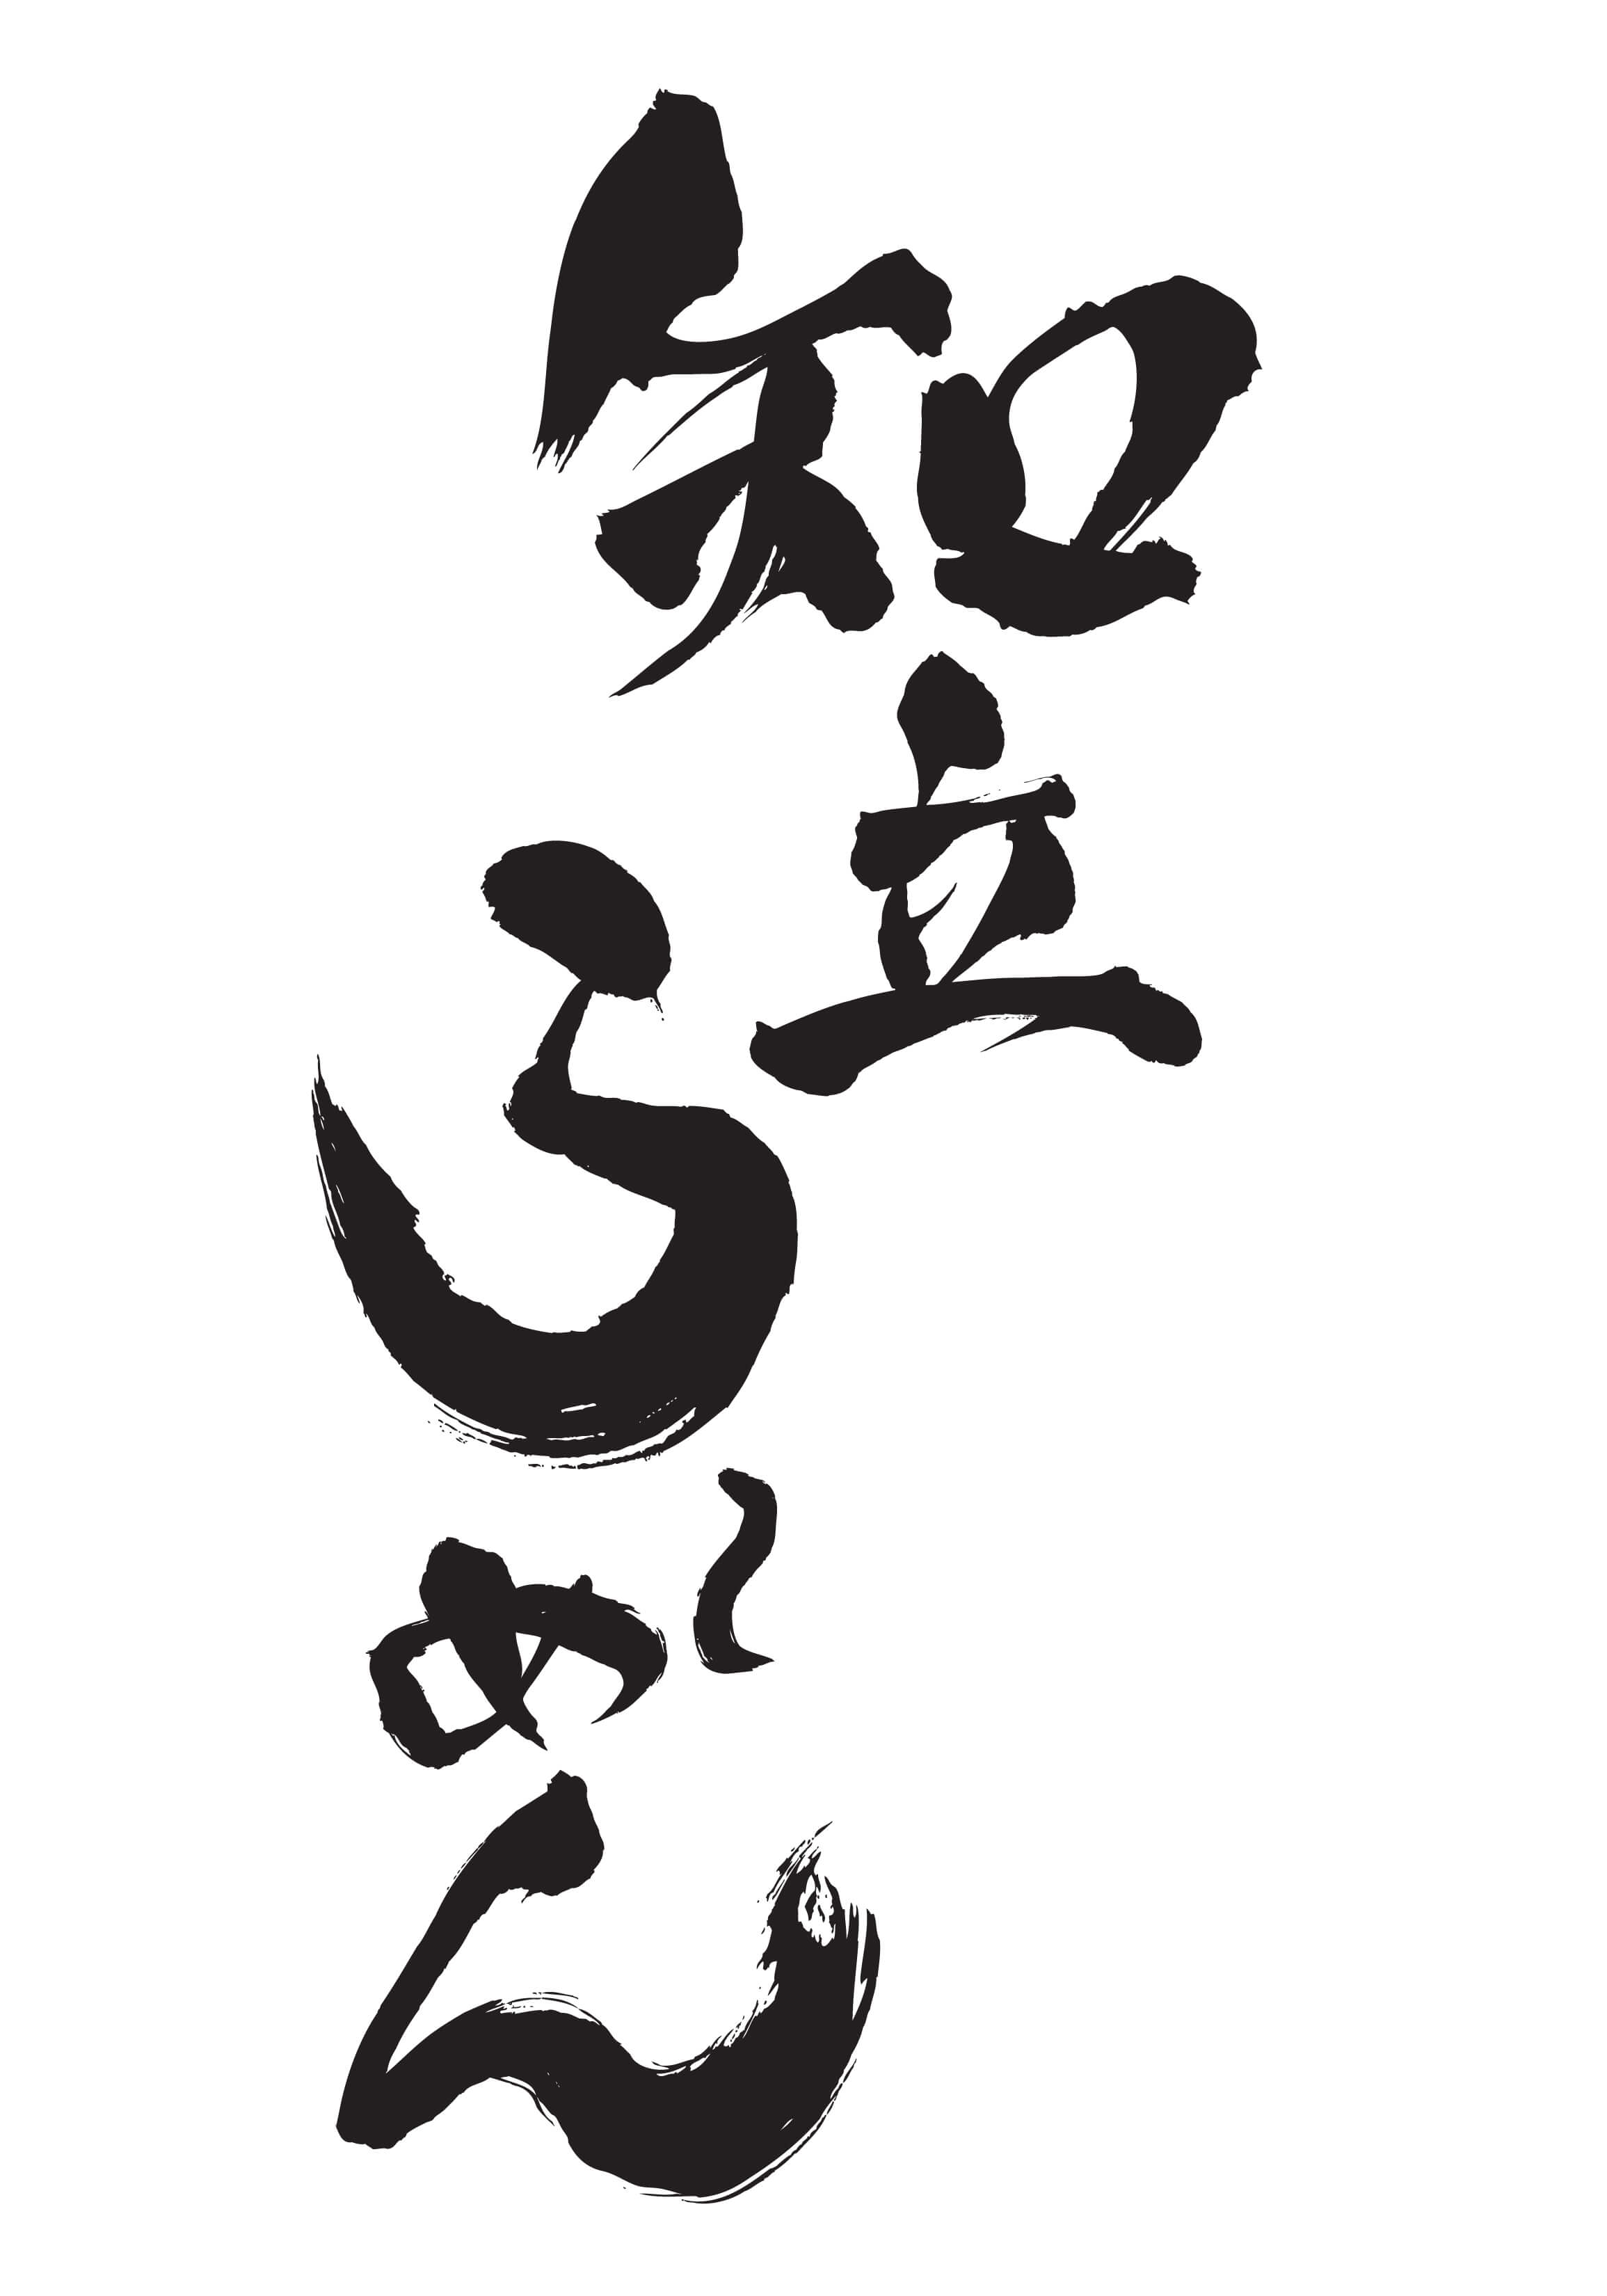 知立らーめん